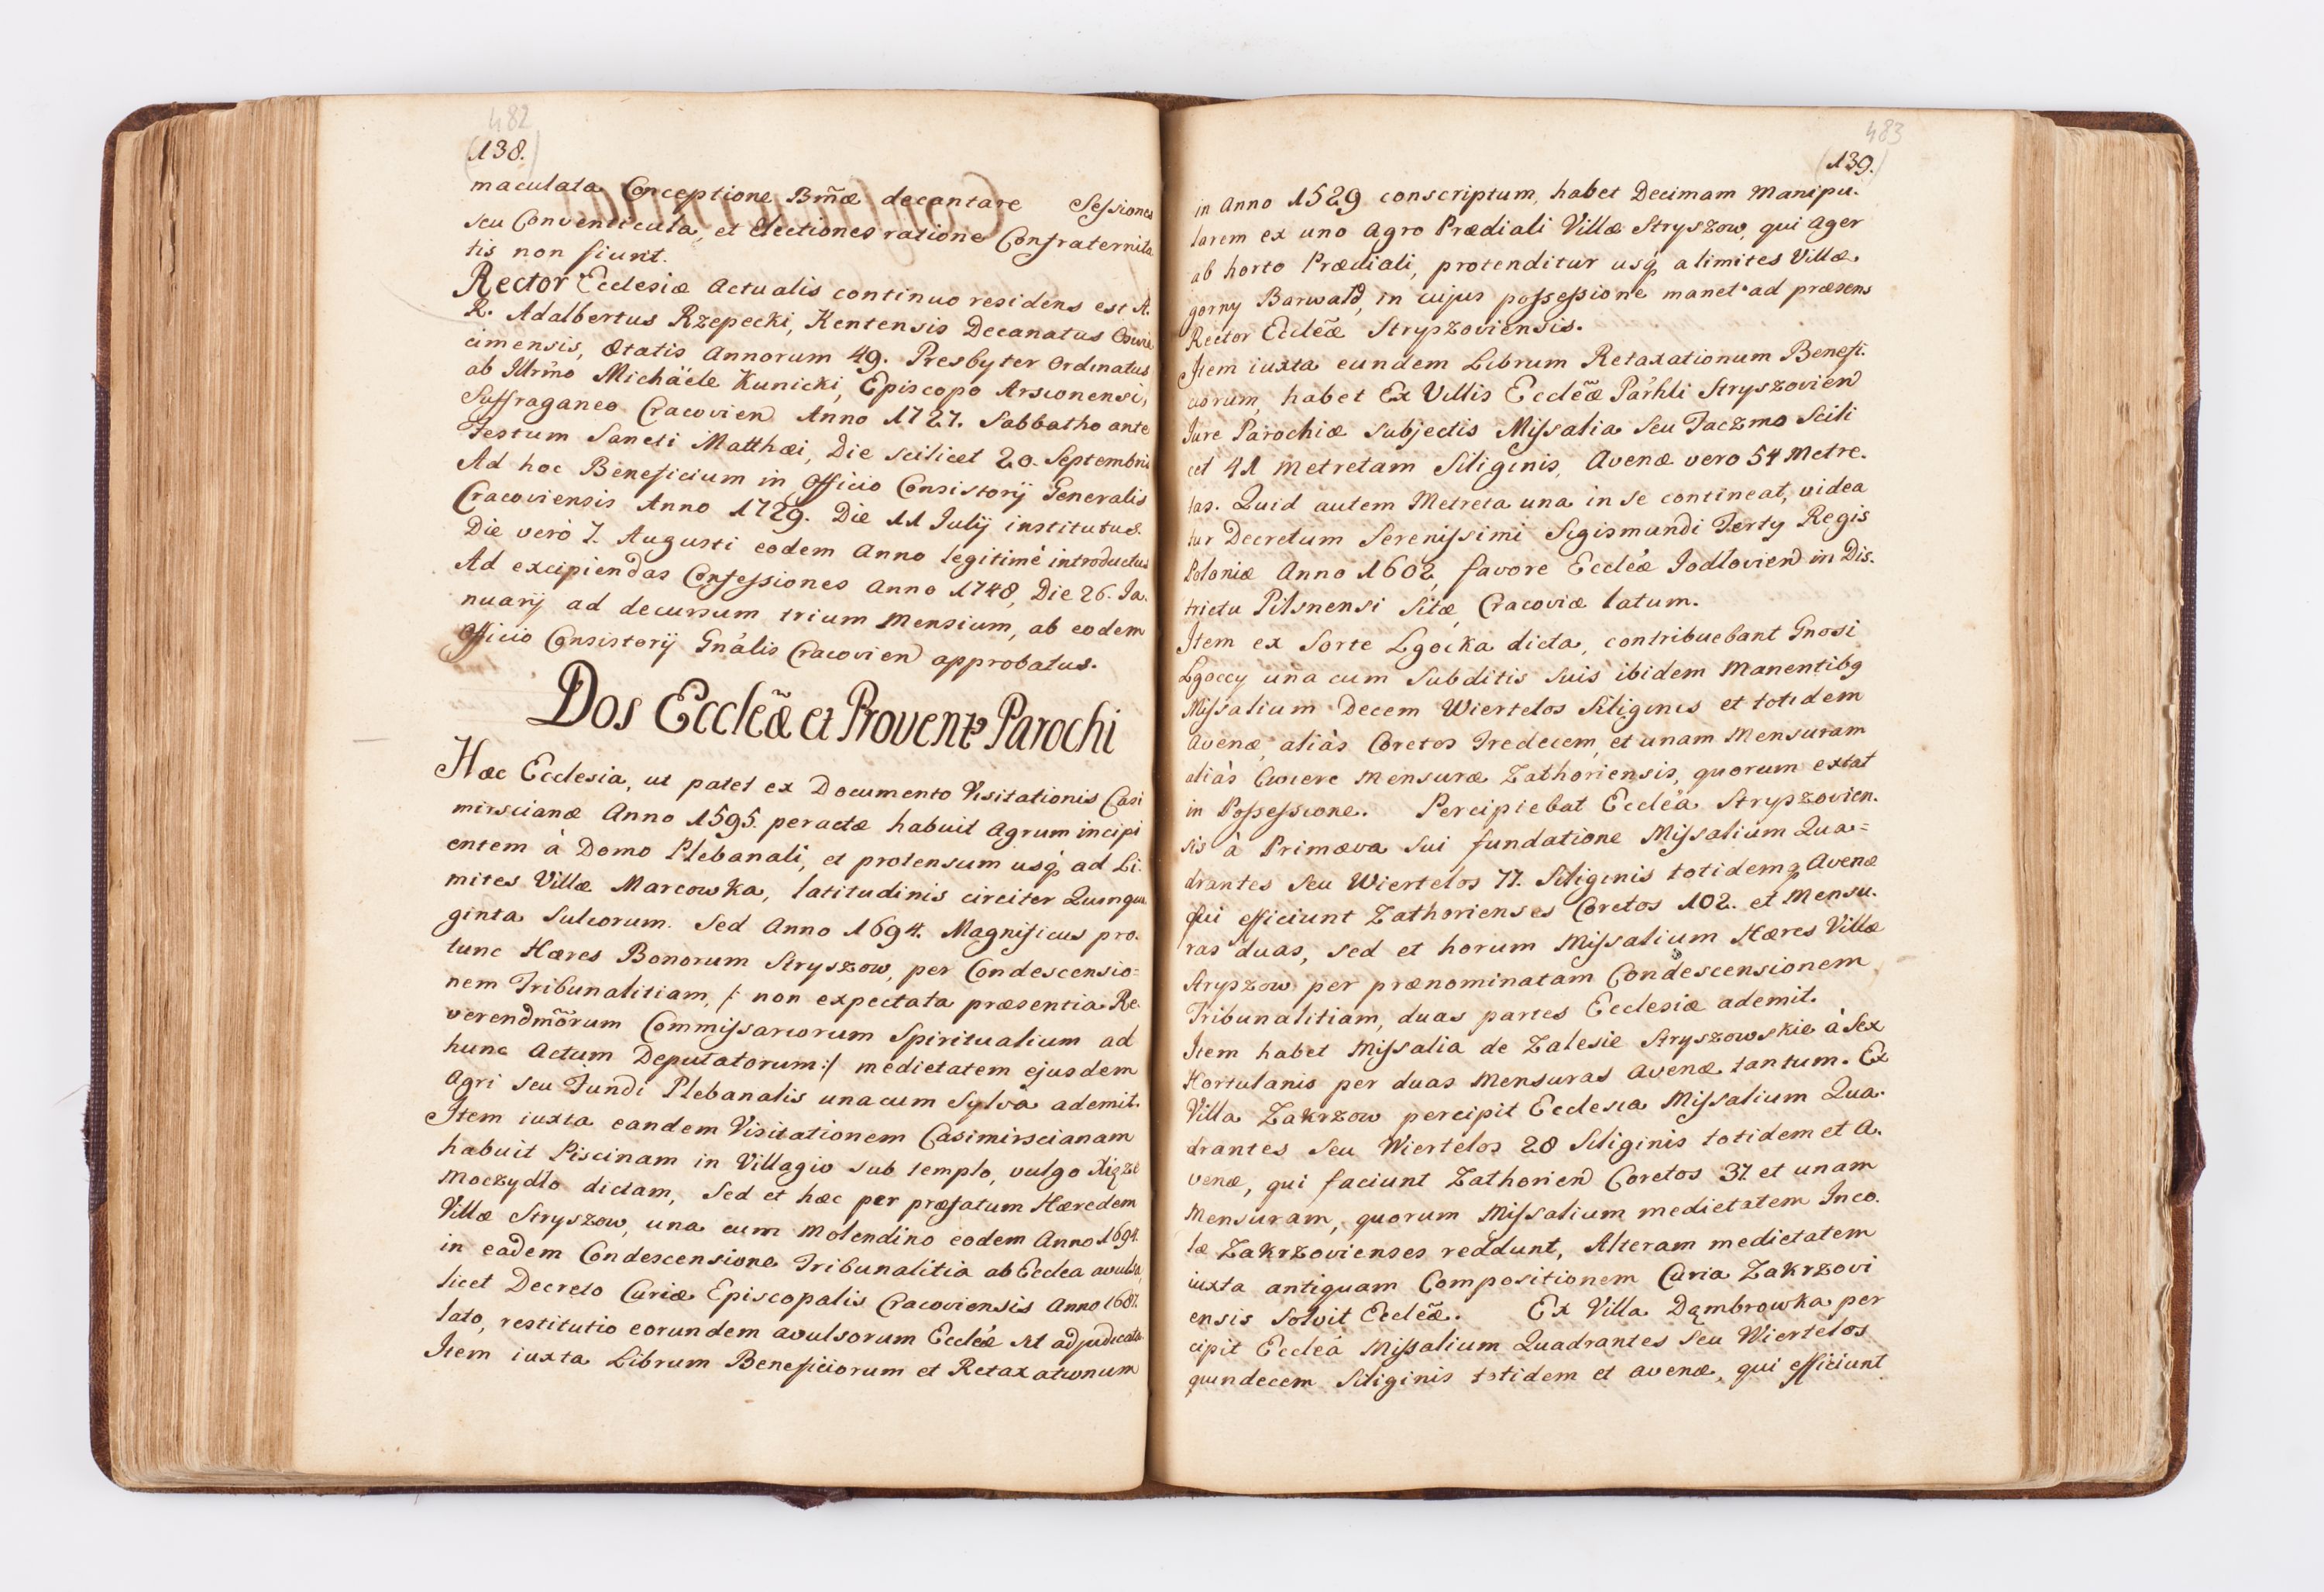 482
(138.)
maculata Conceptione Bm̃æ decantare Sessiones
seu Conventicula, et Electiones ratione Confraternita
tis non fiunt.
Rector Ecclesiæ Actualis continuo residens est A.
R. Adalbertus Rzepecki, Kentensis Decanatus Oswie
cimensis, Ætatis Annorum 49. Presbyter Ordinatus
ab Illr̃mo Michäele Kunicki, Episcopo Arsionensi,
Suffraganeo Cracovien Anno 1727. Sabbatho ante
Festum Sancti Matthæi, Die scilicet 20. Septembris
Ad hoc Beneficium in Officio Consistorij Generalis
Cracoviensis Anno 1729. Die 11 Julij institutus.
Die verò 7. Augusti eodem Anno legitimè introductus
Ad excipiendas Confessiones Anno 1748, Die 26. Ja.
nuarij ad decursum trium Mensium, ab eodem
Officio Consistorij Gnális Cracovien approbatus.
Dos Eccleæ̃ et Provent9 Parochi
Hæc Ecclesia, ut patet ex Documento Visitationis Casi
mirscianæ Anno 1595. peractæ habuit Agrum incipi
entem à Domo Plebanali, et protensum usq́ ad Li.
mites Villæ Marcowka, latitudinis circiter Quinqua
ginta Sulcorum. Sed Anno 1694. Magnificus pro.
tunc Hæres Bonorum Stryszow, per Condescensio=
nem Tribunalitiam, /: non expectata præsentia Re
verendmõrum Commissariorum Spiritualium ad
hunc Actum Deputatorum:/ medietatem ejusdem
Agri seu Fundi Plebanalis una cum Sylvâ ademit.
Item iuxta eandem Visitationem Casimirscianam
habuit Piscinam in Villagio sub templo, vulgo Xięże
Moczydło dictam, Sed et hæc per præfatum Hæredem
Villæ Stryszow, una cum Molendino eodem Anno 1694.
in eadem Condescensione Tribunalitia ab Ecclea avulsa,
licet Decreto Curiæ Episcopalis Cracoviensis Anno 1687.
lato, restitutio eorundem avulsorum Eccleǽ sit adjudicata.
Item iuxta Librum Beneficiorum et Retaxationum
483
(139.)
in Anno 1529 conscriptum, habet Decimam Manipu.
larem ex uno Agro Prædiali Villæ Stryszow, qui Ager
ab horto Prædiali, protenditur usq́ a limites Villæ
gorny Barwałd, in cujus possessione manet ad præsens
Rector Eccleæ̃ Stryszoviensis.
Item iuxta eundem Librum Retaxationum Benefi.
ciorum, habet Ex Villis Eccleæ̃ Párhli Stryszovien
Jure Parochiæ subjectis Missalia seu Taczmo Scili
cet 41 metretam Siliginis, Avenæ vero 54 Metre.
tas. Quid autem Metreta una in se contineat, videa
tur Decretum Serenissimi Sigismundi Terty Regis
Poloniæ Anno 1602, favore Eccleǽ Jodlovien in Dis.
trictu Pilsnensi Sitæ, Cracoviæ latum.
Item ex Sorte Lgocka dicta, contribuebant Gnosi
Lgoccy unà cum Subditis Suis ibidem manentib9
Missalium Decem Wiertelos Siliginis et totidem
Avenæ, aliàs Coretos Tredecem, et unam Mensuram
aliàs Cwierc Mensuræ Zathoriensis, quorum extat
in Possessione. Percipiebat Ecclea Stryszovien.
sis à Primæva Sui fundatione Missalium Qua=
drantes seu Wiertelos 77. Siliginis totidemq Avenæ
qui efficiunt Zathorienses Coretos 102. et Mensu.
ras duas, sed et horum Missalium Hæres Villæ
Stryszow per prænominatam Condescensionem
Tribunalitiam, duas partes Ecclesiæ ademit.
Item habet Missalia de Zalesie Stryszowskie à Sex
Hortulanis per duas Mensuras Avenæ tantum. Ex
Villa Zakrzow percipit Ecclesia Missalium Qua.
drantes seu Wiertelos 28 Siliginis totidem et A.
venæ, qui faciunt Zathorien Coretos 37. et unam
Mensuram, quorum Missalium medietatem Inco.
læ Zakrzovienses reddunt, Alteram medietatem
iuxta antiquam Compositionem Curia Zakrzovi
ensis solvit Eccleæ̃. Ex Villa Dąmbrowka per
cipit Eccleá Missalium Quadrantes seu Wiertelos
quindecem Siliginis totidem et avenæ, qui efficiunt